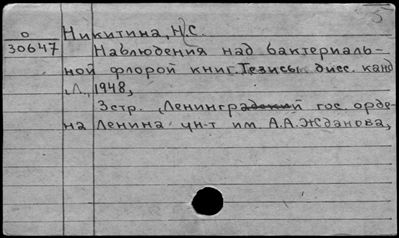 5
О
30647
Никитина, Н.С.
Наблюдения над бактериаль-
ной флорой книг. Тезисы дисс. канд
Л., 1948,
3 стр. (Ленинградский гос. орде-
на Ленина ун-т им. А.А. Жданова,